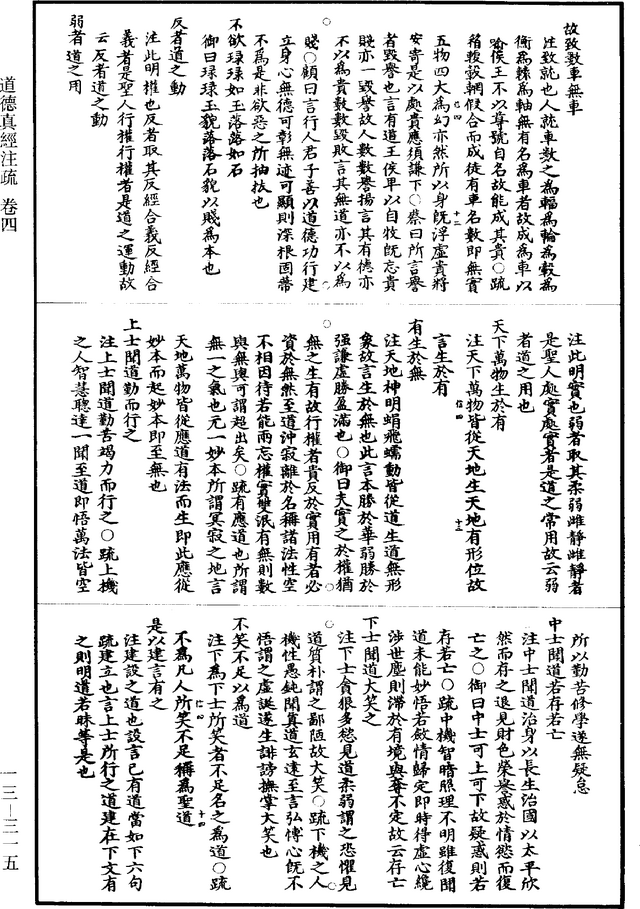 故致數車無車
注致就也人就車數之為輻為輪為轂為
衡為轅為軸無有名為車者故成為車以
喻侯王不以尊號自名故能成其貴○疏
箱輳轂輞假合而成徒有車名數即無實
五物四大為幻亦然所以身既浮虛貴將
安寄是以處貴應須謙下○蔡曰所言譽
者毀譽也言有道王侯卑以自牧既忘貴
賤亦一毀譽故人數數譽揚言其有德亦
不以為貴數數毀敗言其無道亦不以為
賤○顧曰言行人君子善以道德功行建
立身心無德可彰無迹可顯則深根固蒂
不為是非欲惡之所抽拔也
不欲琭琭如玉落落如石
御曰琭琭玉貌落落石貌以賤為本也
反者道之動
注此明權也反者取其反經合義反經合
義者是聖人行權行權者是道之運動故
云反者道之動
弱者道之用
注此明實也弱者取其柔弱雌靜雌靜者
是聖人處實處實者是道之常用故云弱
者道之用也
天下萬物生於有
注天下萬物皆從天地生天地有形位故
言生於有
有生於無
注天地神明蜎飛蠕動皆從道生道無形
象故言生於無也此言本勝於華弱勝於
强謙虛勝盈滿也○御曰夫實之於權猶
無之生有故行權者貴反於實用有者必
資於無然至道沖寂離於名稱諸法性空
不相因待若能兩忘權實雙泯有無則數
與無輿可謂超出矣○疏有應道也所謂
無一之氣也元一妙本所謂冥寂之地言
天地萬物皆從應道有法而生即此應從
妙本而起妙本即至無也
上士聞道勤而行之
注上士聞道勤苦竭力而行之○疏上機
之人智慧聰達一聞至道即悟萬法皆空
所以勤苦修學遂無疑怠
中士聞道若存若亡
注中士聞道治身以長生治國以太平欣
然而存之退見財色榮譽惑於情慾而復
亡之○御曰中士可上可下故疑惑則若
存若亡○疏中機智暗照理不明雖復聞
道未能妙悟若斂情歸定即時得虛心纔
涉世塵則滯於有境與奪不定故云存亡
下士聞道大笑之
注下士貪狠多愁見道柔弱謂之恐懼見
道質朴謂之鄙陋故大笑○疏下機之人
機性愚鈍聞真道玄遠至言弘博心既不
悟謂之虛誕遂生誹謗撫掌大笑也
不笑不足以為道
注下為下士所笑者不足名之為道○疏
不為凡人所笑不足稱為聖道
是以建言有之
注建設之道也設言已有道當如下六句
疏建立也言上士所行之道建在下文有
之則明道若昧等是也
道德真經注疏 卷四
一三—三一五